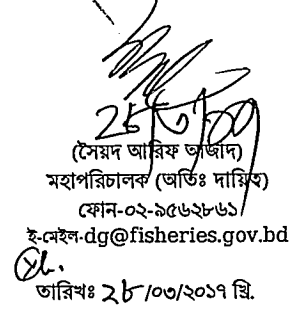 (সৈয়দ আরিফ আজাদ)
মহাপরিচালক (অতিঃ দায়িত্ব)
ফোন-০২-৯৫৬২৮৬১
ই-মেইল-dg@fisheries.gov.bd
তারিখঃ ২৮/০৩/২০১৭ খ্রি.